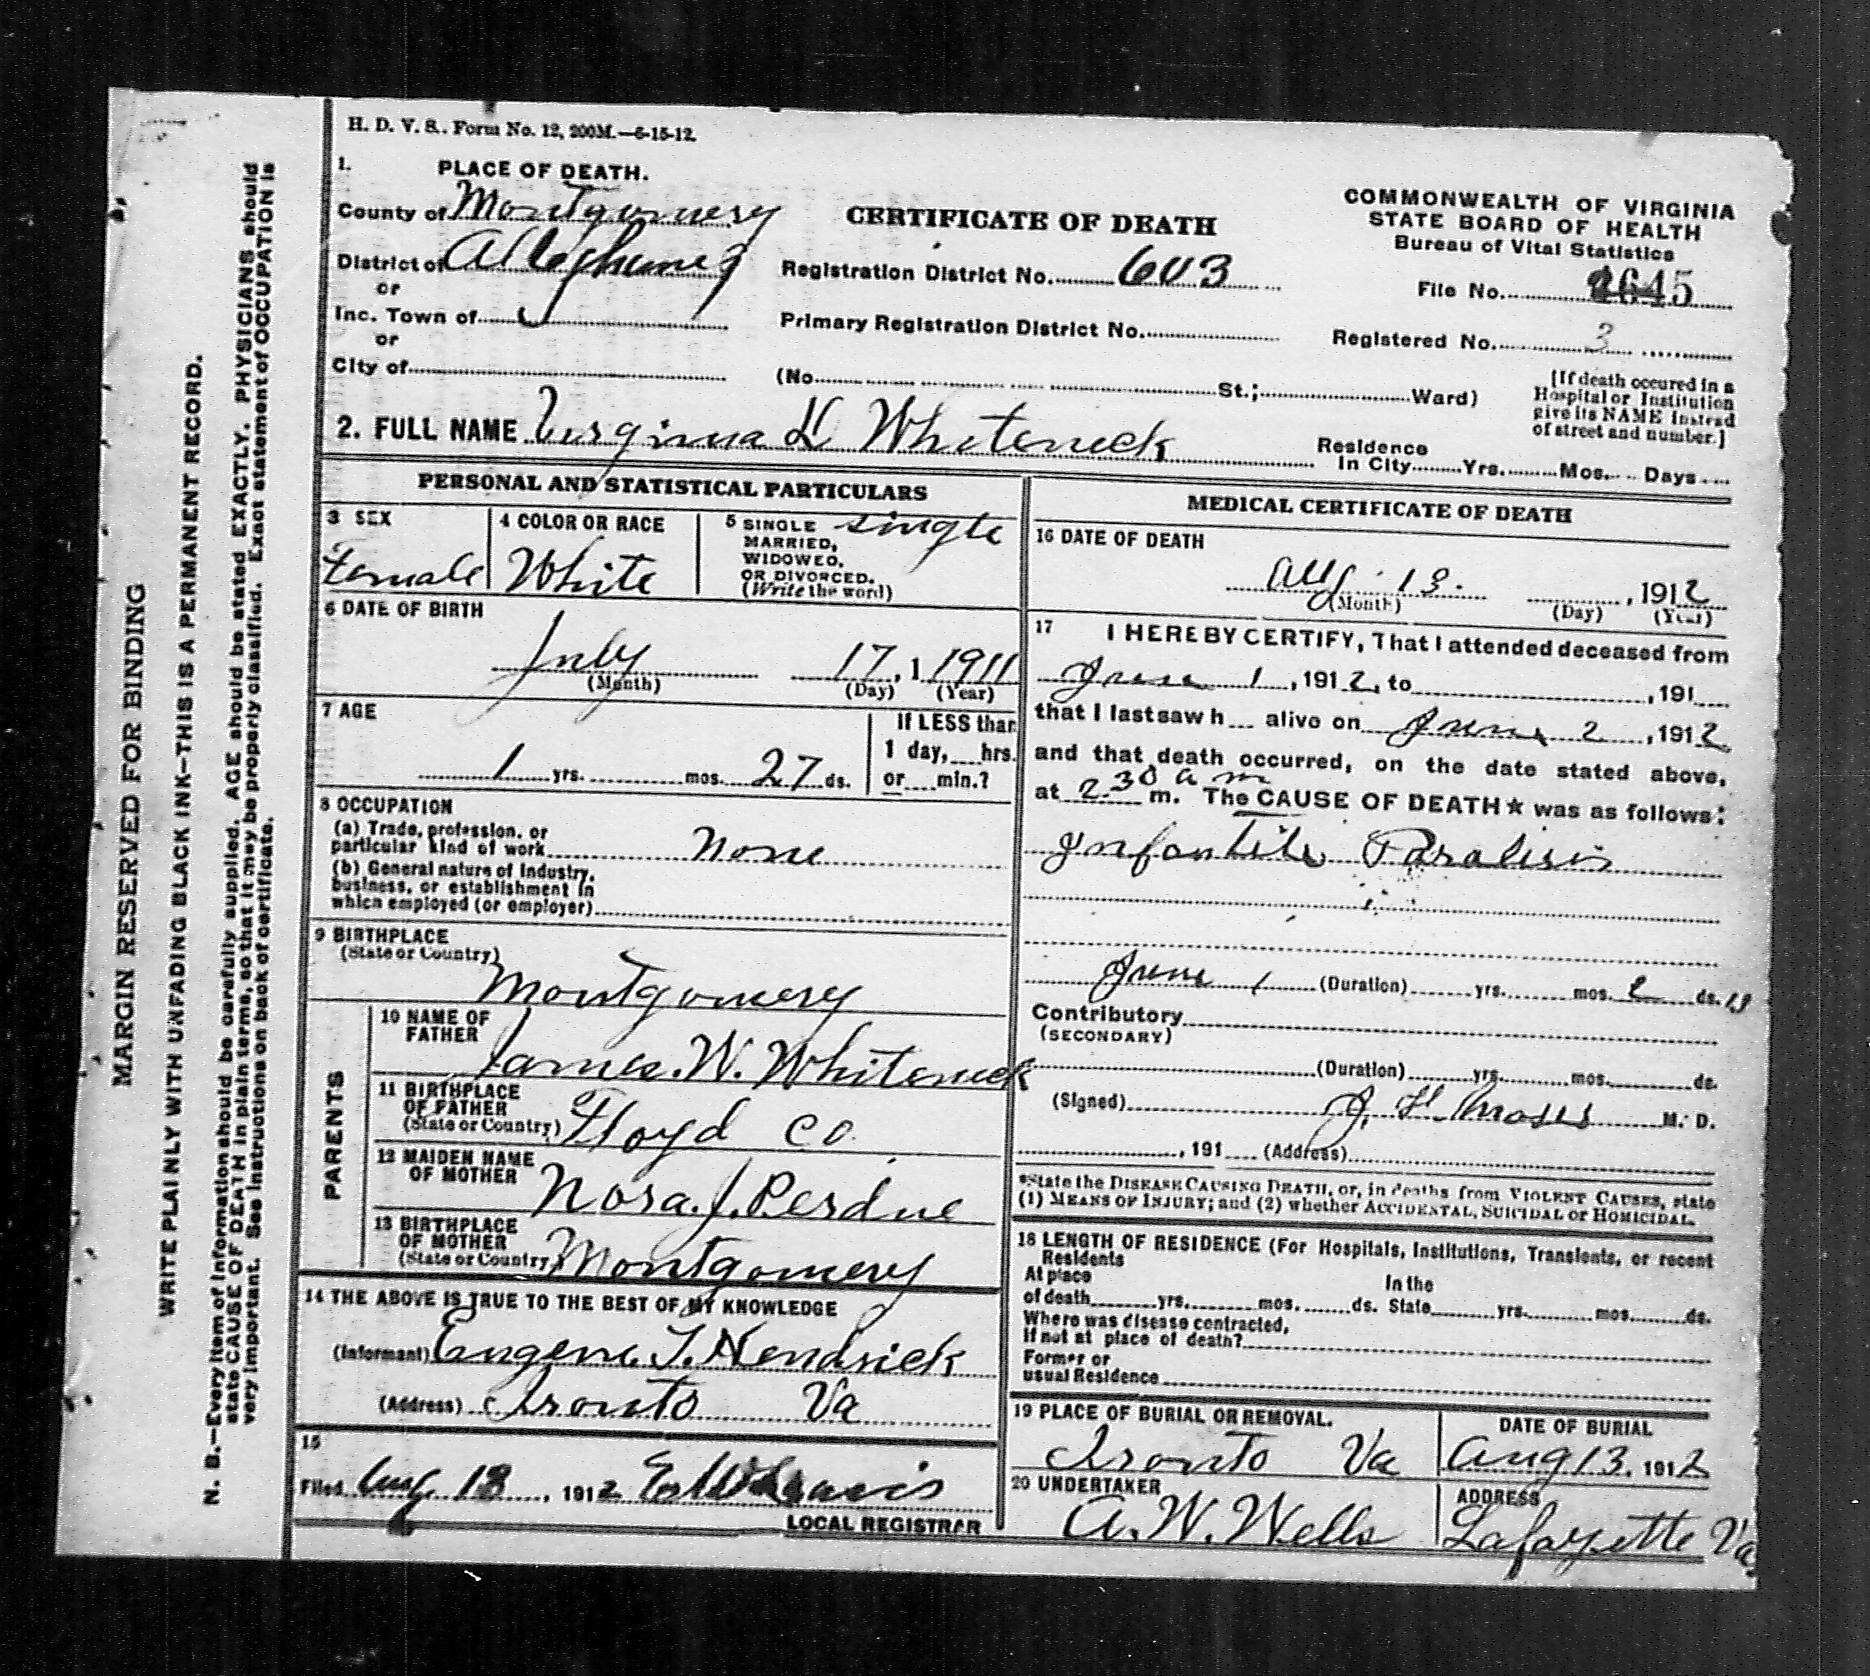 H. D. V. S. Form No. 12, 200M.—6-15-12.
1. PLACE OF DEATH.
County of Montgomery
District of Alleghany
or
Inc. Town of
or
City of
CERTIFICATE OF DEATH
Registration District No. 603
Primary Registration District No.
(No. St.; Ward)
COMMONWEALTH OF VIRGINIA
STATE BOARD OF HEALTH
Bureau of Vital Statistics
File No. 645
Registered No. 3
[If death occured in a
Hospital or Institution
give its NAME instead
of street and number.]
2. FULL NAME Virginia K Whiteneck
Residence
In City Yrs. Mos. Days
PERSONAL AND STATISTICAL PARTICULARS
3 SEX
Female
4 COLOR OR RACE
White
5 SINGLE single
MARRIED,
WIDOWED,
OR DIVORCED.
(Write the word)
6 DATE OF BIRTH
July 17, 1 1911
(Month) (Day) (Year)
7 AGE
1 yrs. mos. 27 ds.
If LESS than
1 day, hrs.
or min.?
8 OCCUPATION
(a) Trade, profession, or
particular kind of work None
(b) General nature of Industry,
business, or establishment in
which employed (or employer)
9 BIRTHPLACE
(State or Country)
Montgomery
PARENTS
10 NAME OF
FATHER
James. W. Whiteneck
11 BIRTHPLACE
OF FATHER
(State or Country) Floyd Co.
12 MAIDEN NAME
OF MOTHER
Nora. J. Perdue
13 BIRTHPLACE
OF MOTHER
(State or Country) Montgomery
14 THE ABOVE IS TRUE TO THE BEST OF MY KNOWLEDGE
(Informant) Eugene. T. Hendrick
(Address) Ironto Va
15
Filed Aug 13, 1912
LOCAL REGISTRAR
MEDICAL CERTIFICATE OF DEATH
16 DATE OF DEATH
Aug. 13. , 1912
(Month) (Day) (Year)
17 I HEREBY CERTIFY, That I attended deceased from
June 1, 1912, to , 191
that I last saw h alive on June 2, 1912
and that death occurred, on the date stated above,
at 2.30 a m m. The CAUSE OF DEATH★ was as follows:
Infantile Paralisis
June 1 (Duration) yrs. mos. 2 ds. 13
Contributory
(SECONDARY)
(Duration) yrs. mos. ds.
(Signed) J. H. Moses M. D.
, 191 (Address)
*State the DISEASE CAUSING DEATH, or, in deaths from VIOLENT CAUSES, state
(1) MEANS OF INJURY; and (2) whether ACCIDENTAL, SUICIDAL or HOMICIDAL.
18 LENGTH OF RESIDENCE (For Hospitals, Institutions, Transients, or recent
Residents
At place In the
of death yrs. mos. ds. State yrs. mos. ds.
Where was disease contracted,
If not at place of death?
Former or
usual Residence
19 PLACE OF BURIAL OR REMOVAL.
Ironto Va
DATE OF BURIAL
Aug 13. 1912
20 UNDERTAKER
A. W. Wells
ADDRESS
Lafayette Va
MARGIN RESERVED FOR BINDING
WRITE PLAINLY WITH UNFADING BLACK INK—THIS IS A PERMANENT RECORD.
N. B.—Every item of information should be carefully supplied. AGE should be stated EXACTLY. PHYSICIANS should
state CAUSE OF DEATH in plain terms, so that it may be properly classified. Exact statement of OCCUPATION is
very important. See instructions on back of certificate.